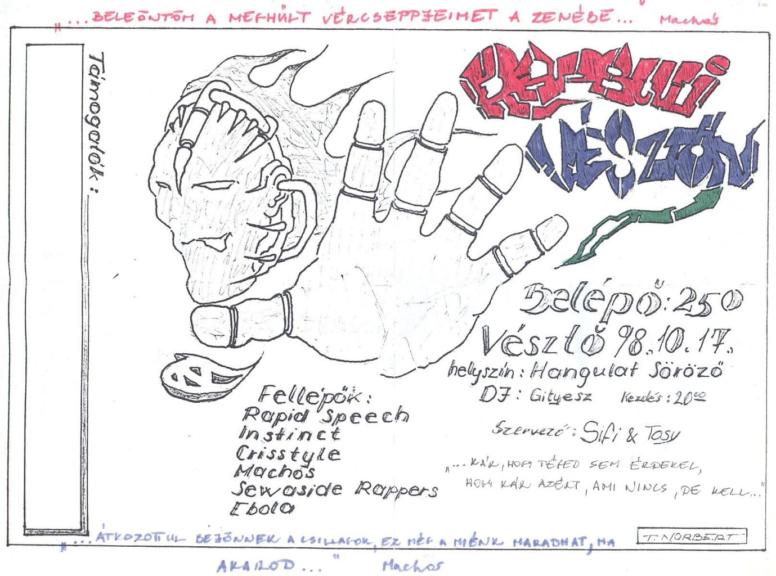 „...BELEÖNTÖM A MEGHŰLT VÉRCSEPPJEIMET A ZENÉBE..." Machós
Támogatók:
RAPBULI
VÉSZTŐN
Belépő: 250
Vésztő 98.10.17.
helyszín: Hangulat Söröző
DJ: Gityesz Kezdés: 20⁰⁰
Szervező: Sifi & Tosy
„...KÁR, HOGY TÉGED SEM ÉRDEKEL,
HOGY KÁR AZÉRT, AMI NINCS, DE KELL..."
Fellépők:
Rapid Speech
Instinct
Crisstyle
Machós
Sewaside Rappers
Ebola
T. NORBERT
„...ÁTKOZOTTUL BEJÖNNEK A CSILLAGOK, EZ MÉG A MIÉNK MARADHAT, HA
AKAROD..." Machós